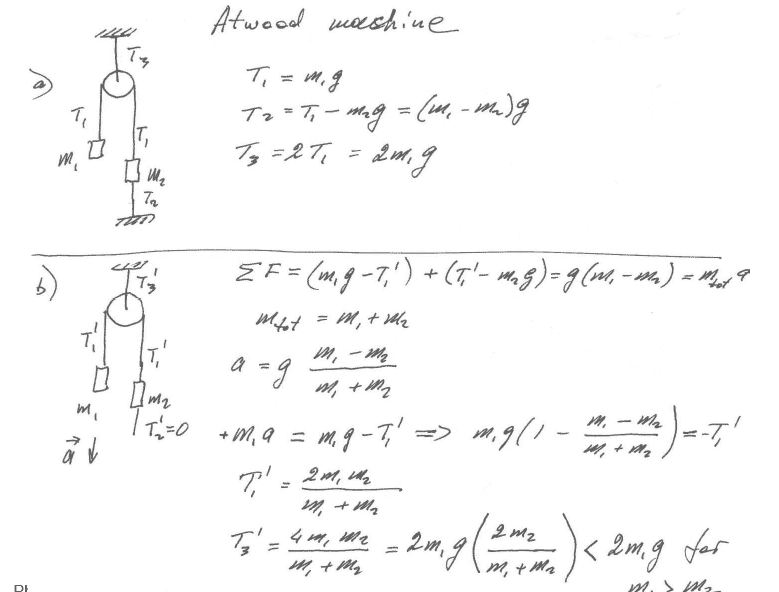 Atwood machine
a)
T₃
T₁
T₁
m₁
m₂
T₂
T₁ = m₁g
T₂ = T₁ − m₂g = (m₁ − m₂)g
T₃ = 2T₁ = 2m₁g
b)
T₃'
T₁'
T₁'
m₁
m₂
T₂' = 0
a⃗
ΣF = (m₁g − T₁') + (T₁' − m₂g) = g(m₁ − m₂) = m_tot a
m_tot = m₁ + m₂
a = g (m₁ − m₂)/(m₁ + m₂)
+m₁a = m₁g − T₁' => m₁g(1 − (m₁ − m₂)/(m₁ + m₂)) = -T₁'
T₁' = (2m₁m₂)/(m₁ + m₂)
T₃' = (4m₁m₂)/(m₁ + m₂) = 2m₁g((2m₂)/(m₁ + m₂)) < 2m₁g for
m₁ > m₂